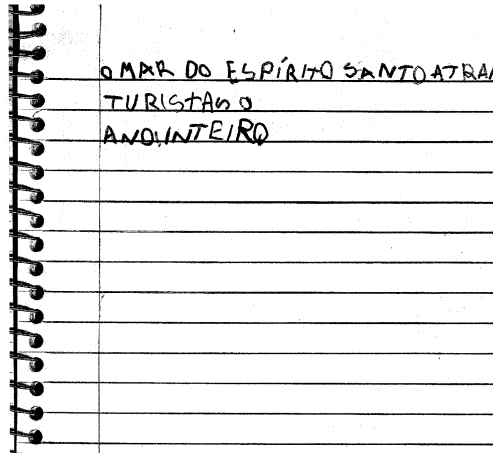 O MAR DO ESPÍRITO SANTO ATRAI
TURISTAS O
ANO INTEIRO